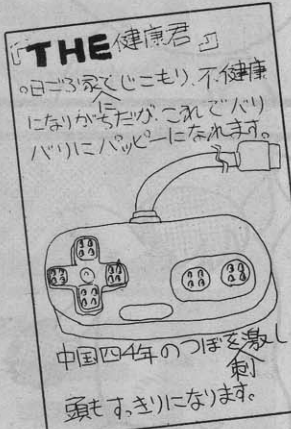 『THE健康君』
日ごろ家にとじこもり、不健康
になりがちだが、これでバリ
バリにハッピーになれます。
中国四千年のつぼを刺激し
頭もすっきりになります。